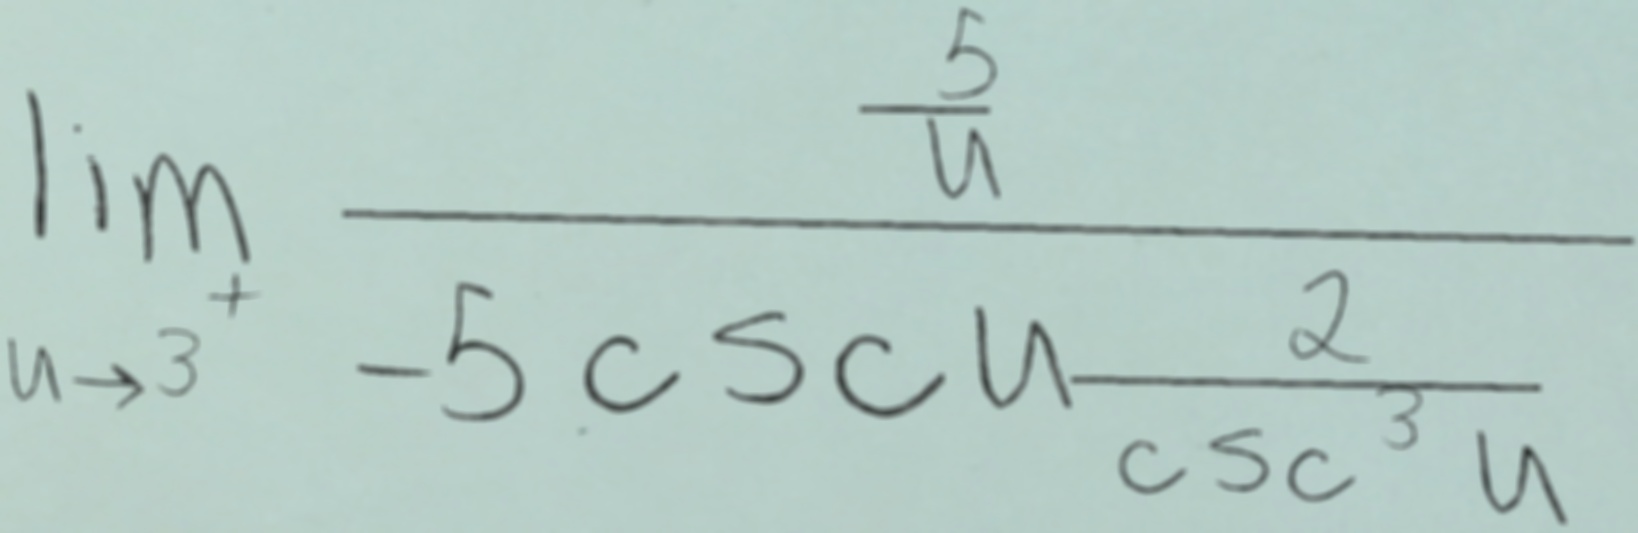 \lim_{u \to 3^{+}} \frac{\frac{5}{u}}{-5 \csc u \frac{2}{\csc^{3} u}}